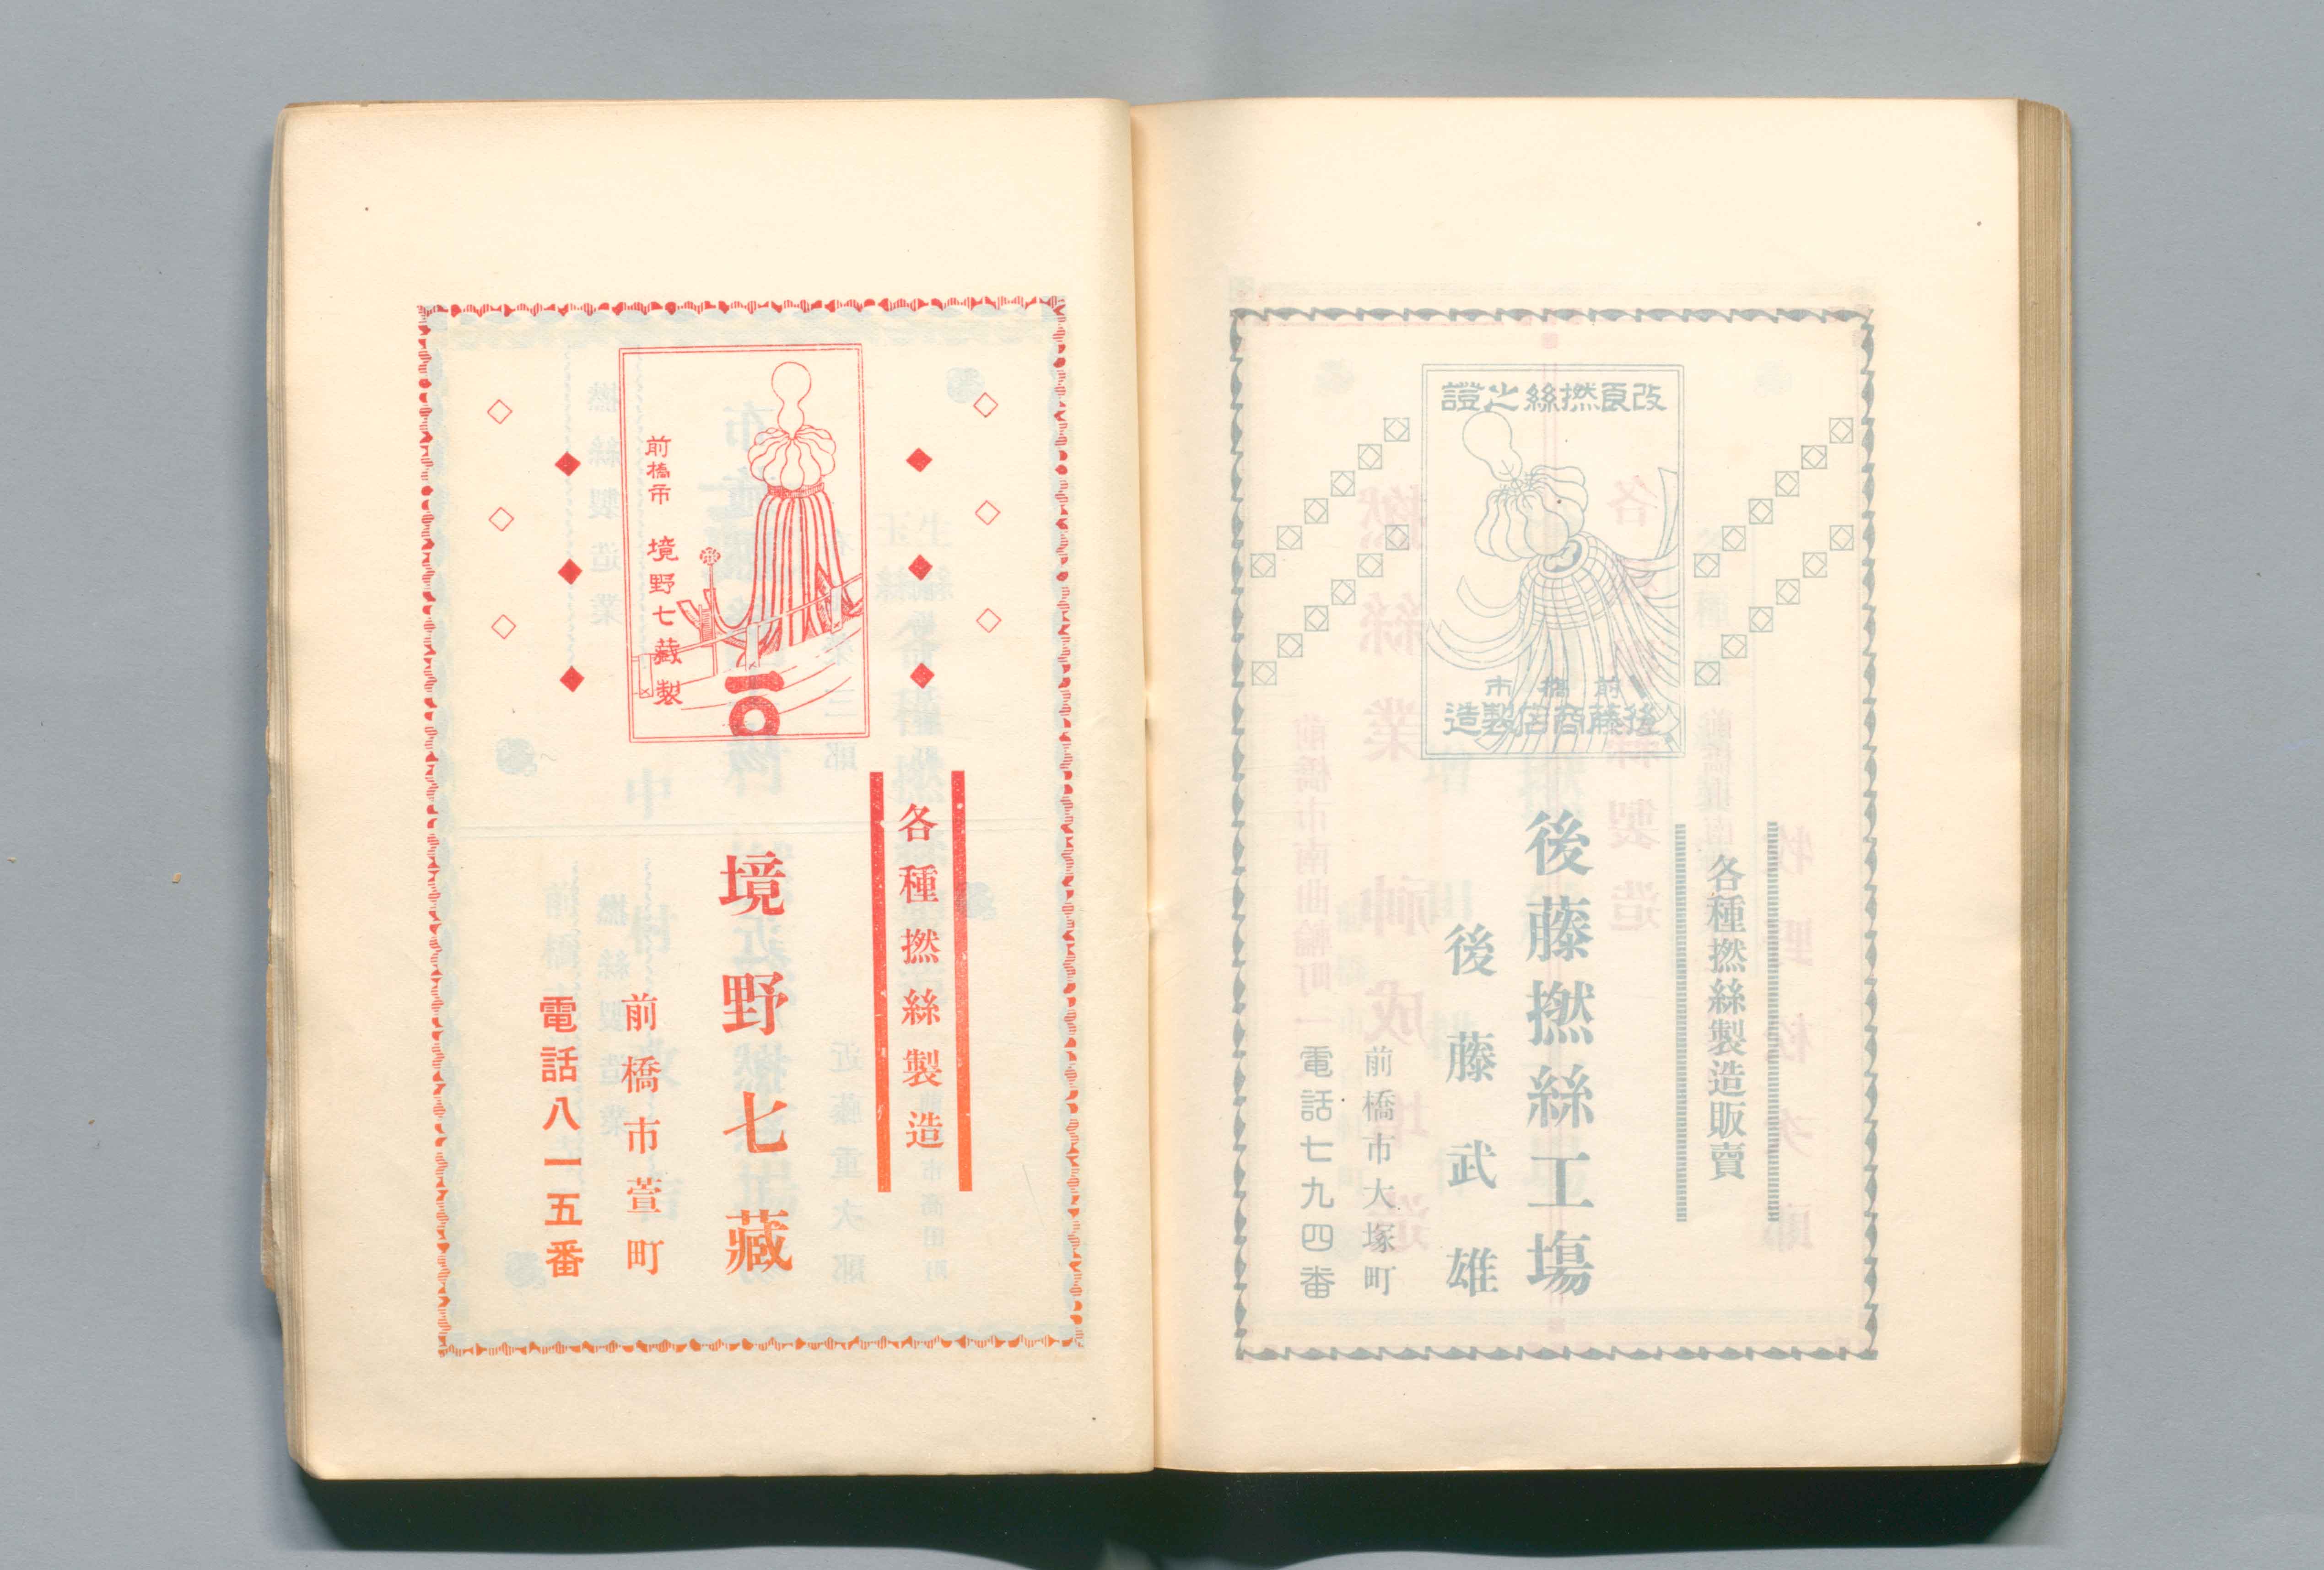 改良撚絲之證
前橋市
後藤商店製造
各種撚絲製造販賣
後藤撚絲工場
後藤武雄
前橋市大塚町
電話七九四番
前橋市 境野七藏製
各種撚絲製造
境野七藏
前橋市萱町
電話八一五番